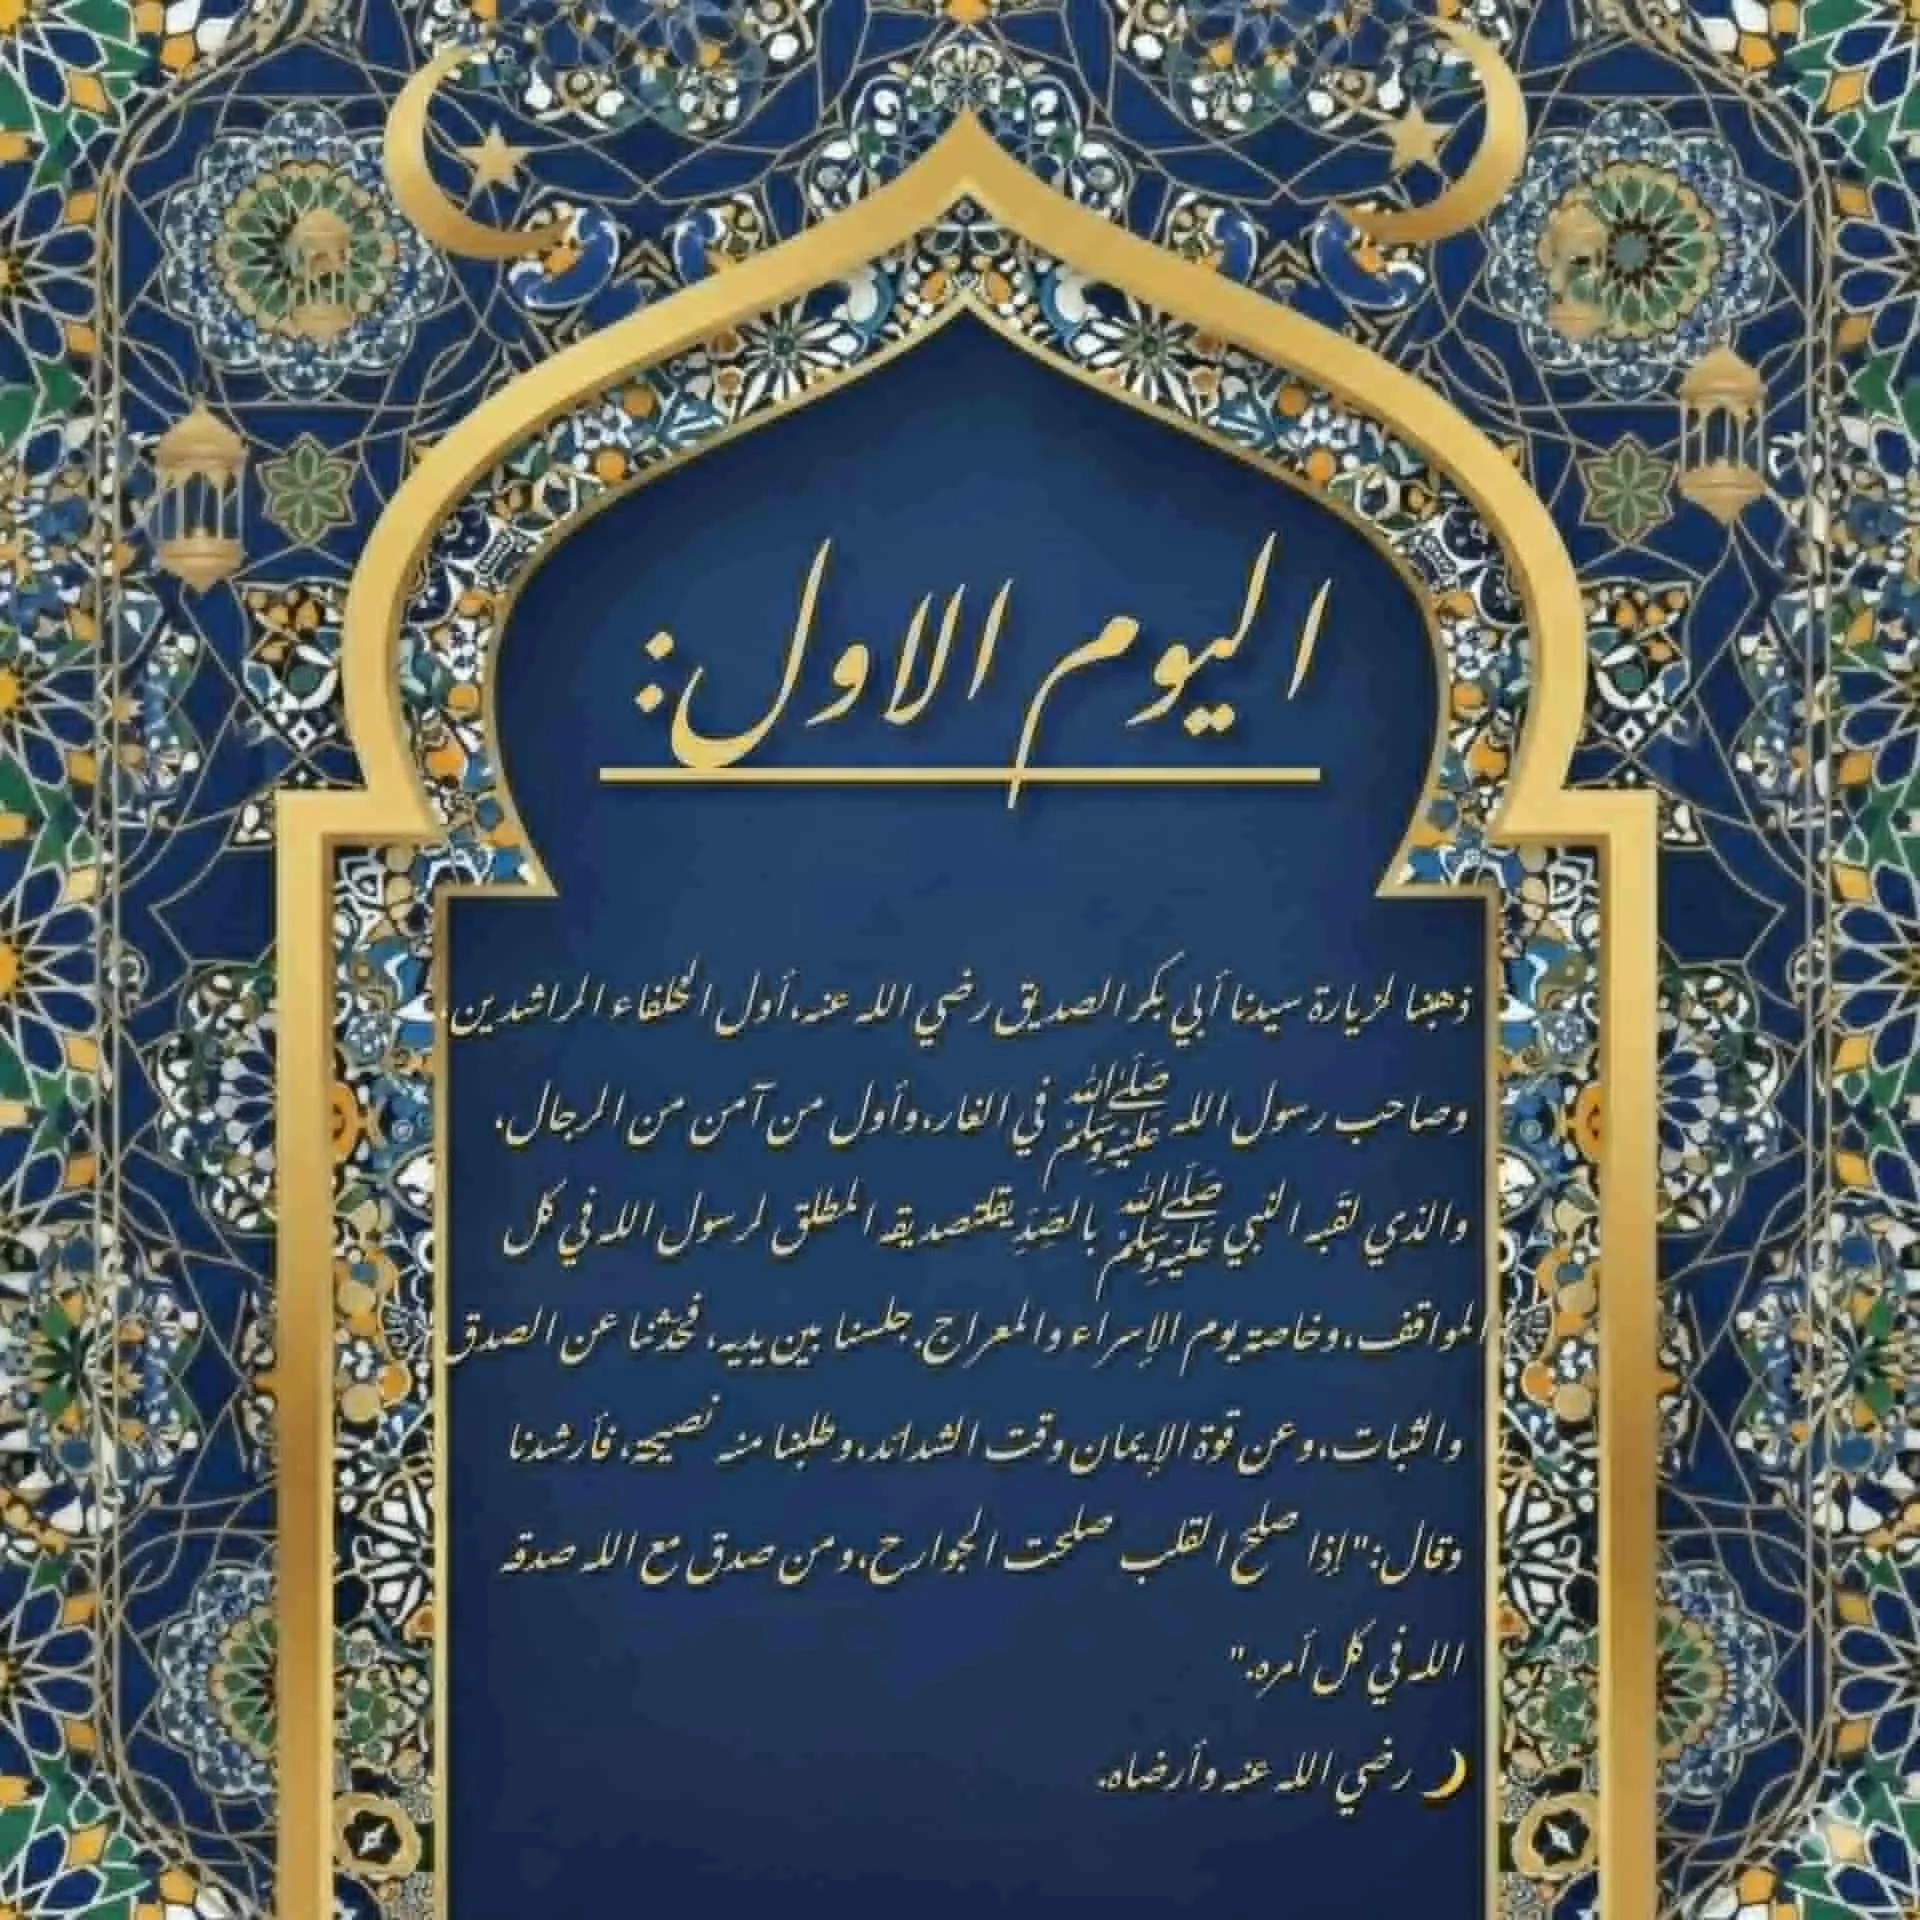 اليوم الاول:
ذهبنا لزيارة سيدنا أبي بكر الصديق رضي الله عنه، أول الخلفاء الراشدين،
وصاحب رسول الله ﷺ في الغار، وأول من آمن من الرجال،
والذي لقبه النبي ﷺ بالصِدِيقلتصديقه المطلق لرسول الله في كل
المواقف، وخاصة يوم الإسراء والمعراج. جلسنا بين يديه، فحدثنا عن الصدق
والثبات، وعن قوة الإيمان وقت الشدائد، وطلبنا منه نصيحة، فأرشدنا
وقال: "إذا صلح القلب صلحت الجوارح، ومن صدق مع الله صدقه
الله في كل أمره."
🌙 رضي الله عنه وأرضاه.